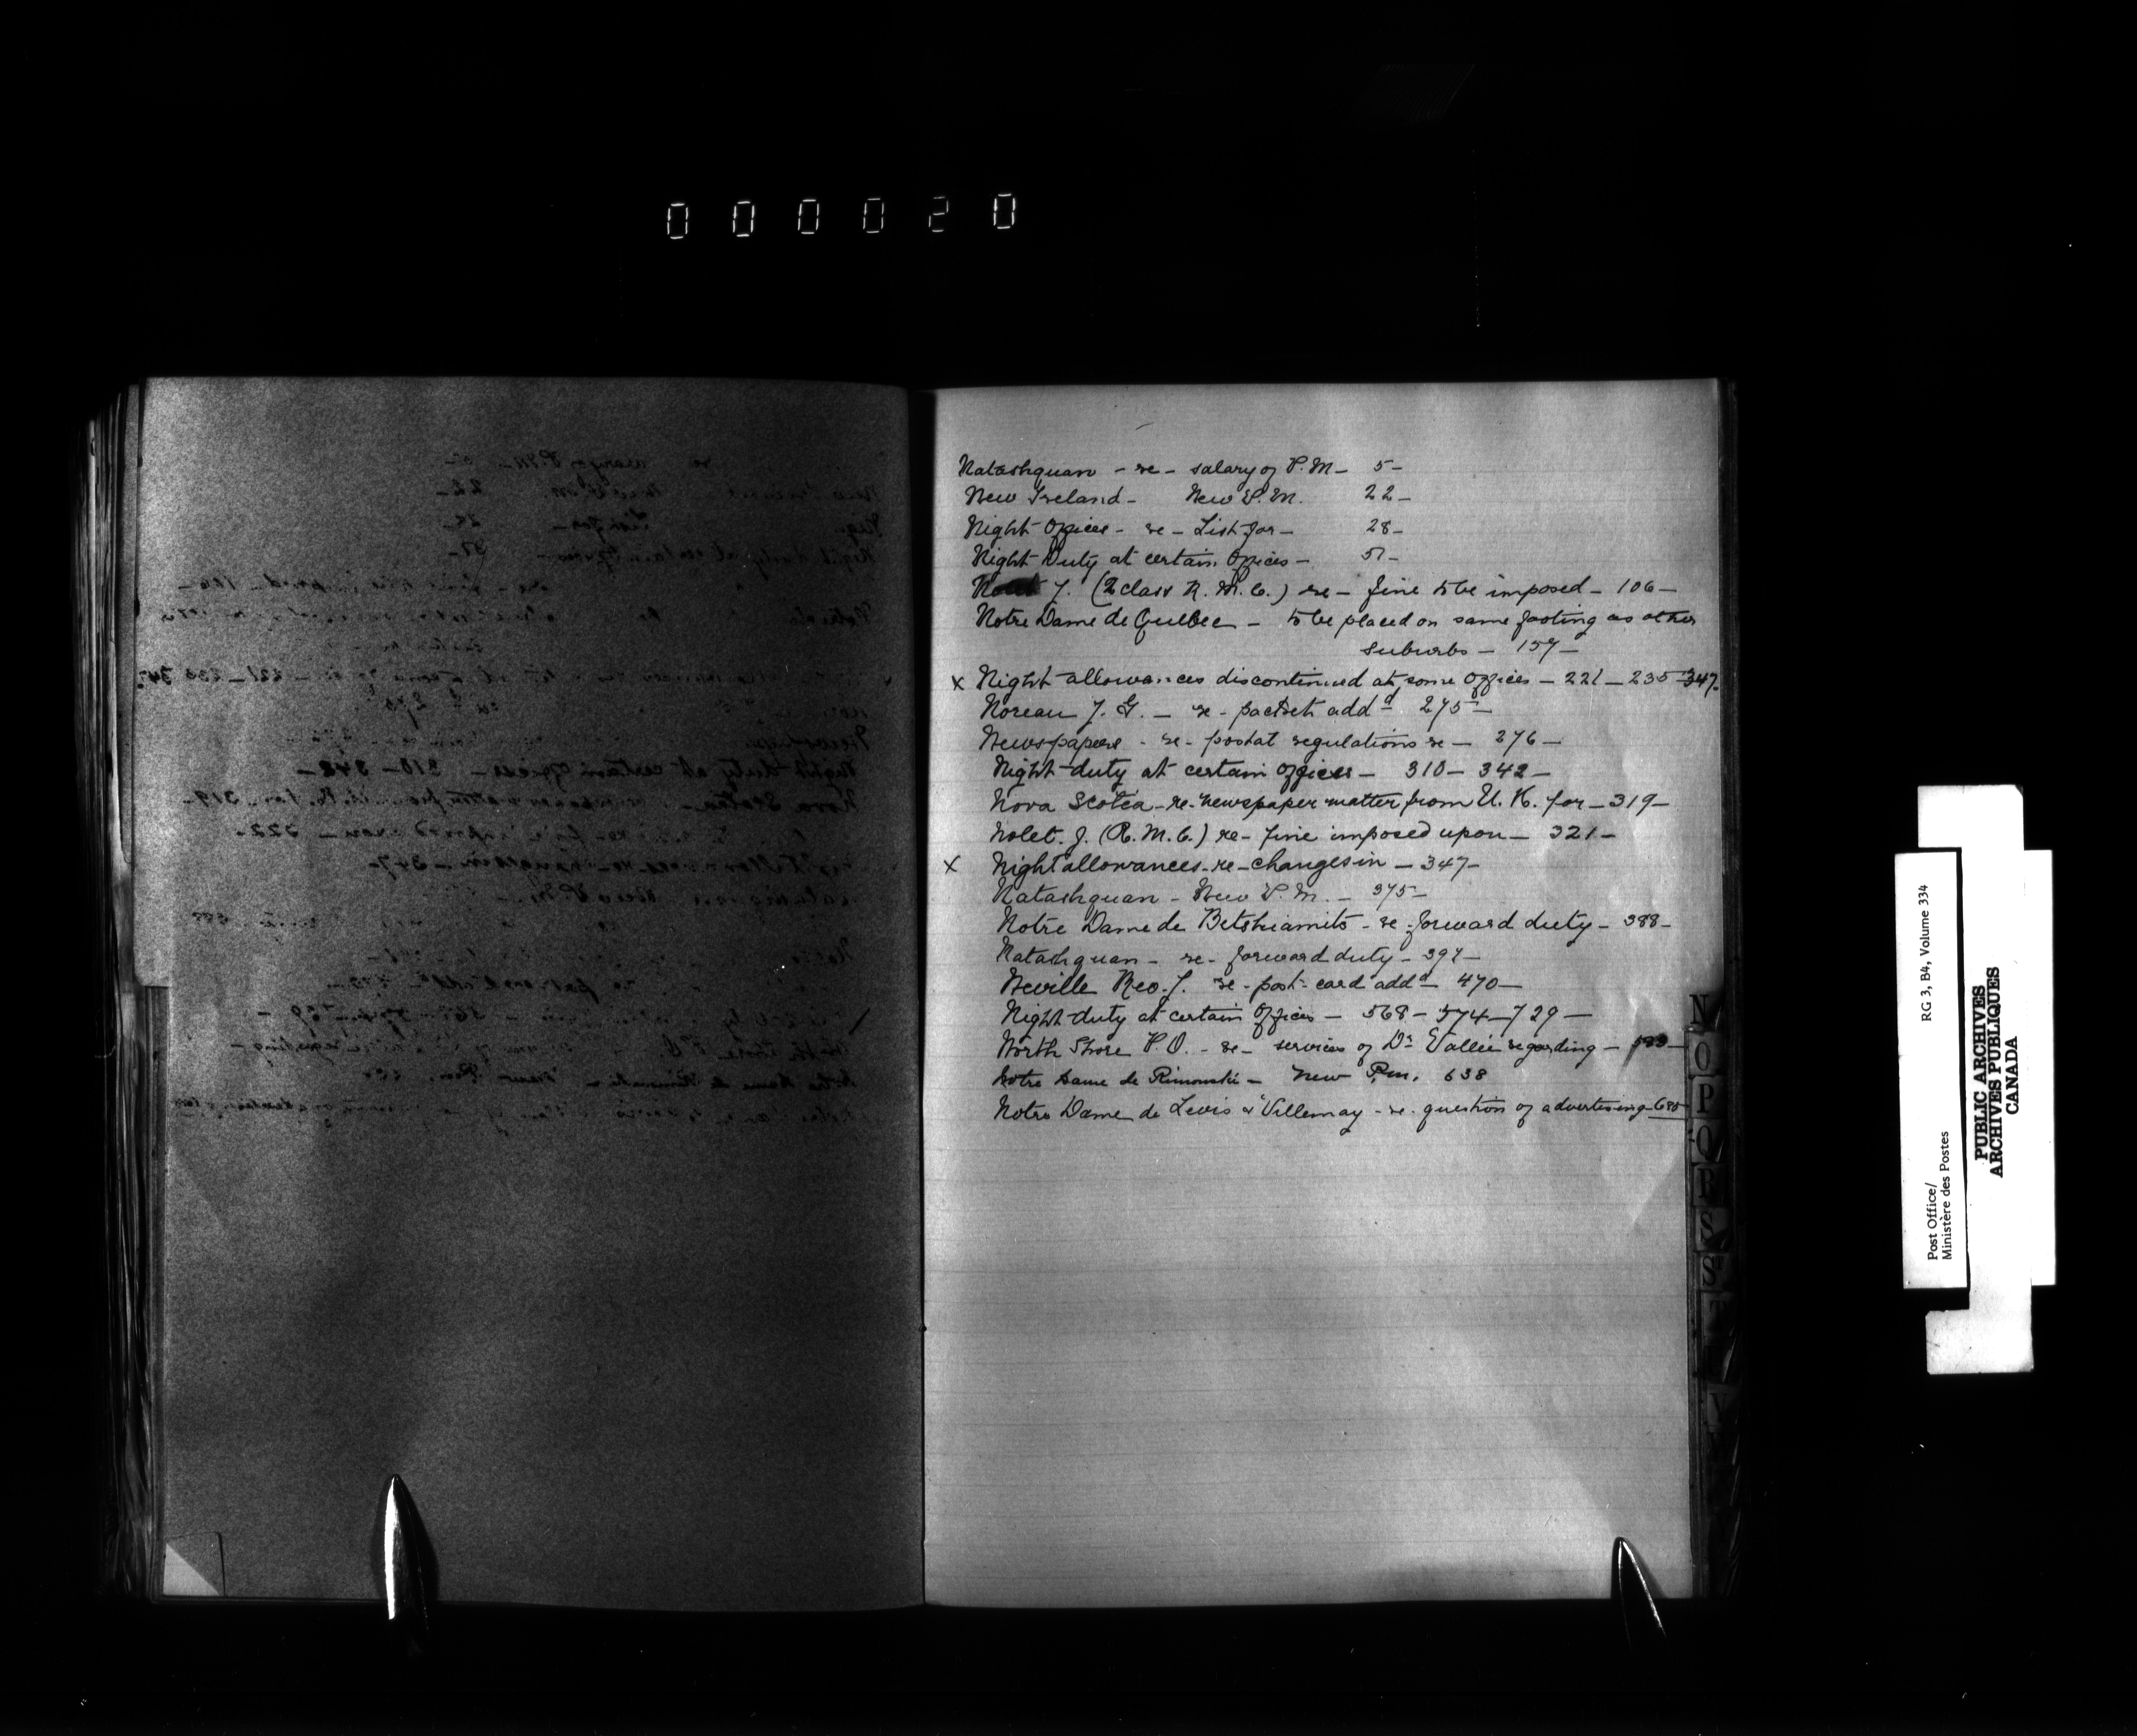 000020
Natashquan - re - salary of P.M - 5 -
New Ireland - New P.M. 22 -
Night Offices - re - List for - 28 -
Night Duty at certain Offices - 51 -
J. (2 class R. M. C.) re - fine to be imposed - 106 -
Notre Dame de Quebec - to be placed on same footing as other
suburbs - 157 -
x Night allowances discontinued at some Offices - 221 - 235 - 347.
Noreau J. G. - re - packet add^d 275 -
Newspapers - re - postal regulations re - 276 -
Night duty at certain offices - 310 - 342 -
Nova Scotia - re - newspaper matter from U. K. for - 319 -
Nolet. J. (R. M. C.) re - fine imposed upon - 321 -
x Night allowances - re - changes in - 347 -
Natashquan - New P.M. - 375 -
Notre Dame de Betshiamits - re - forward duty - 388 -
Natashquan - re - forward duty - 397 -
Neville Reo. J. re - post - card add^d - 470 -
Night duty at certain Offices - 568 - 574 - 729 -
North Shore P.O. - re - services of Dr Vallée regarding -
Notre Dame de Rimouski - New P.m. 638
Notre Dame de Levis & Villemay - re - question of advertising - 685
N
O
P
Q
R
S
Post Office/
Ministère des Postes
RG 3, B4, Volume 334
PUBLIC ARCHIVES
ARCHIVES PUBLIQUES
CANADA